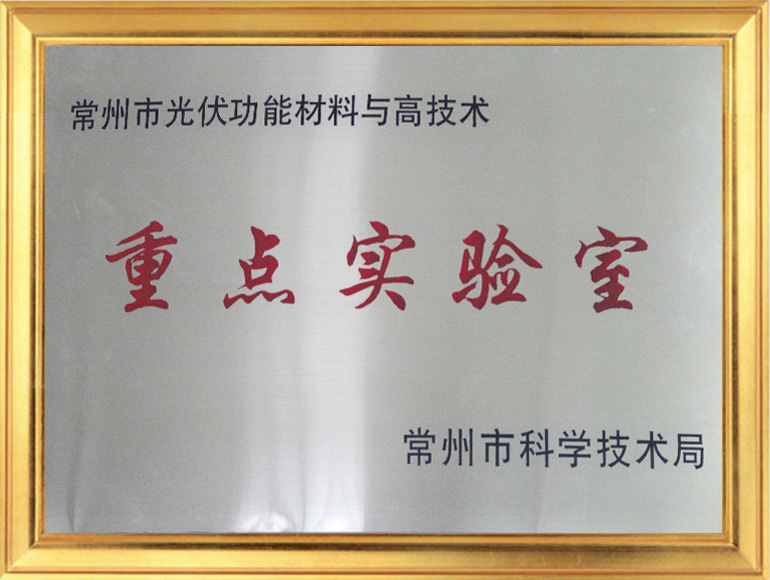 常州市光伏功能材料与高技术
重点实验室
常州市科学技术局